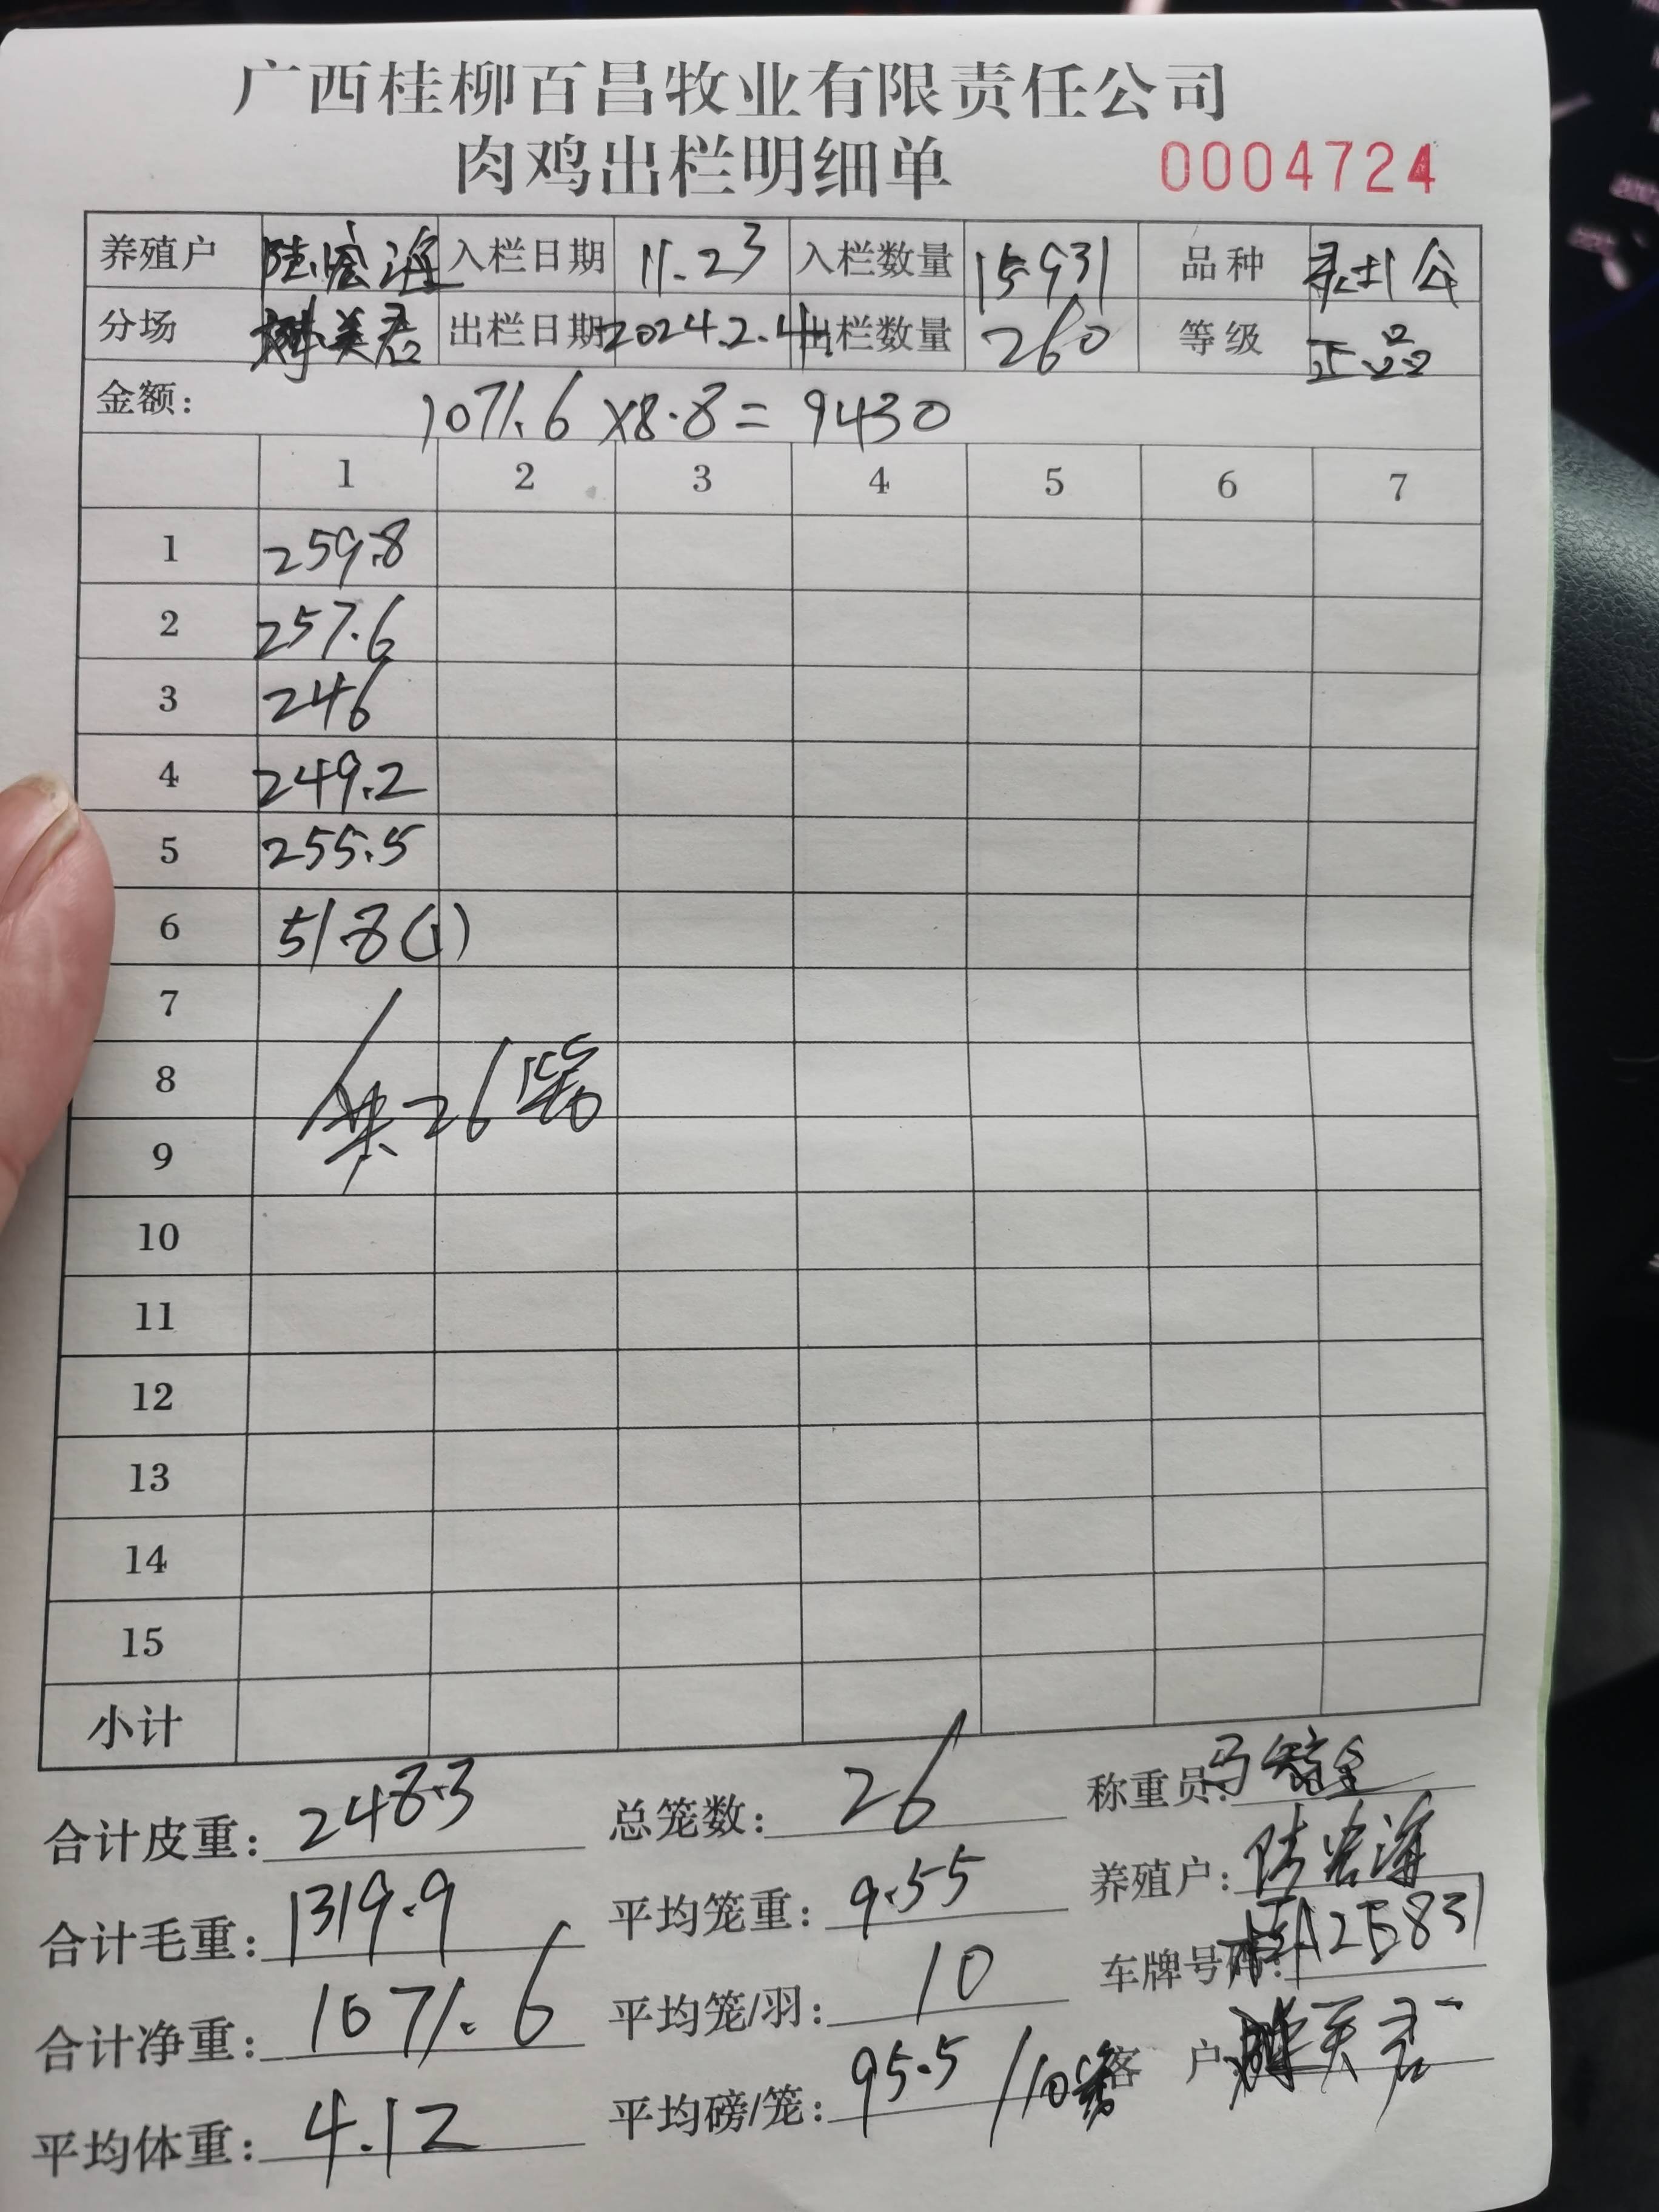 广西桂柳百昌牧业有限责任公司
肉鸡出栏明细单 0004724
养殖户 陆宏海 入栏日期 11.23 入栏数量 15931 品种 公
分场 美君 出栏日期 2024.2.4 出栏数量 260 等级 正品
金额: 1071.6 X8.8= 9430
1 2 3 4 5 6 7
1 259.8
2 257.6
3 246
4 249.2
5 255.5
6 51.8(1)
7
8 共26笼
9
10
11
12
13
14
15
小计
合计皮重: 248.3 总笼数: 26 称重员:
合计毛重: 1319.9 平均笼重: 9.55 养殖户: 陆宏海
合计净重: 1071.6 平均笼/羽: 10 车牌号码: 桂A2E831
平均体重: 4.12 平均磅/笼: 95.5/10笼 客户: 美君